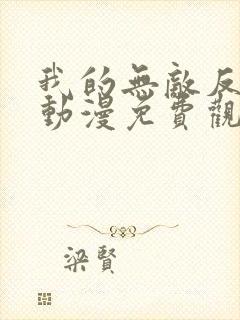 我的無敵反
動漫免費觀
梁賢